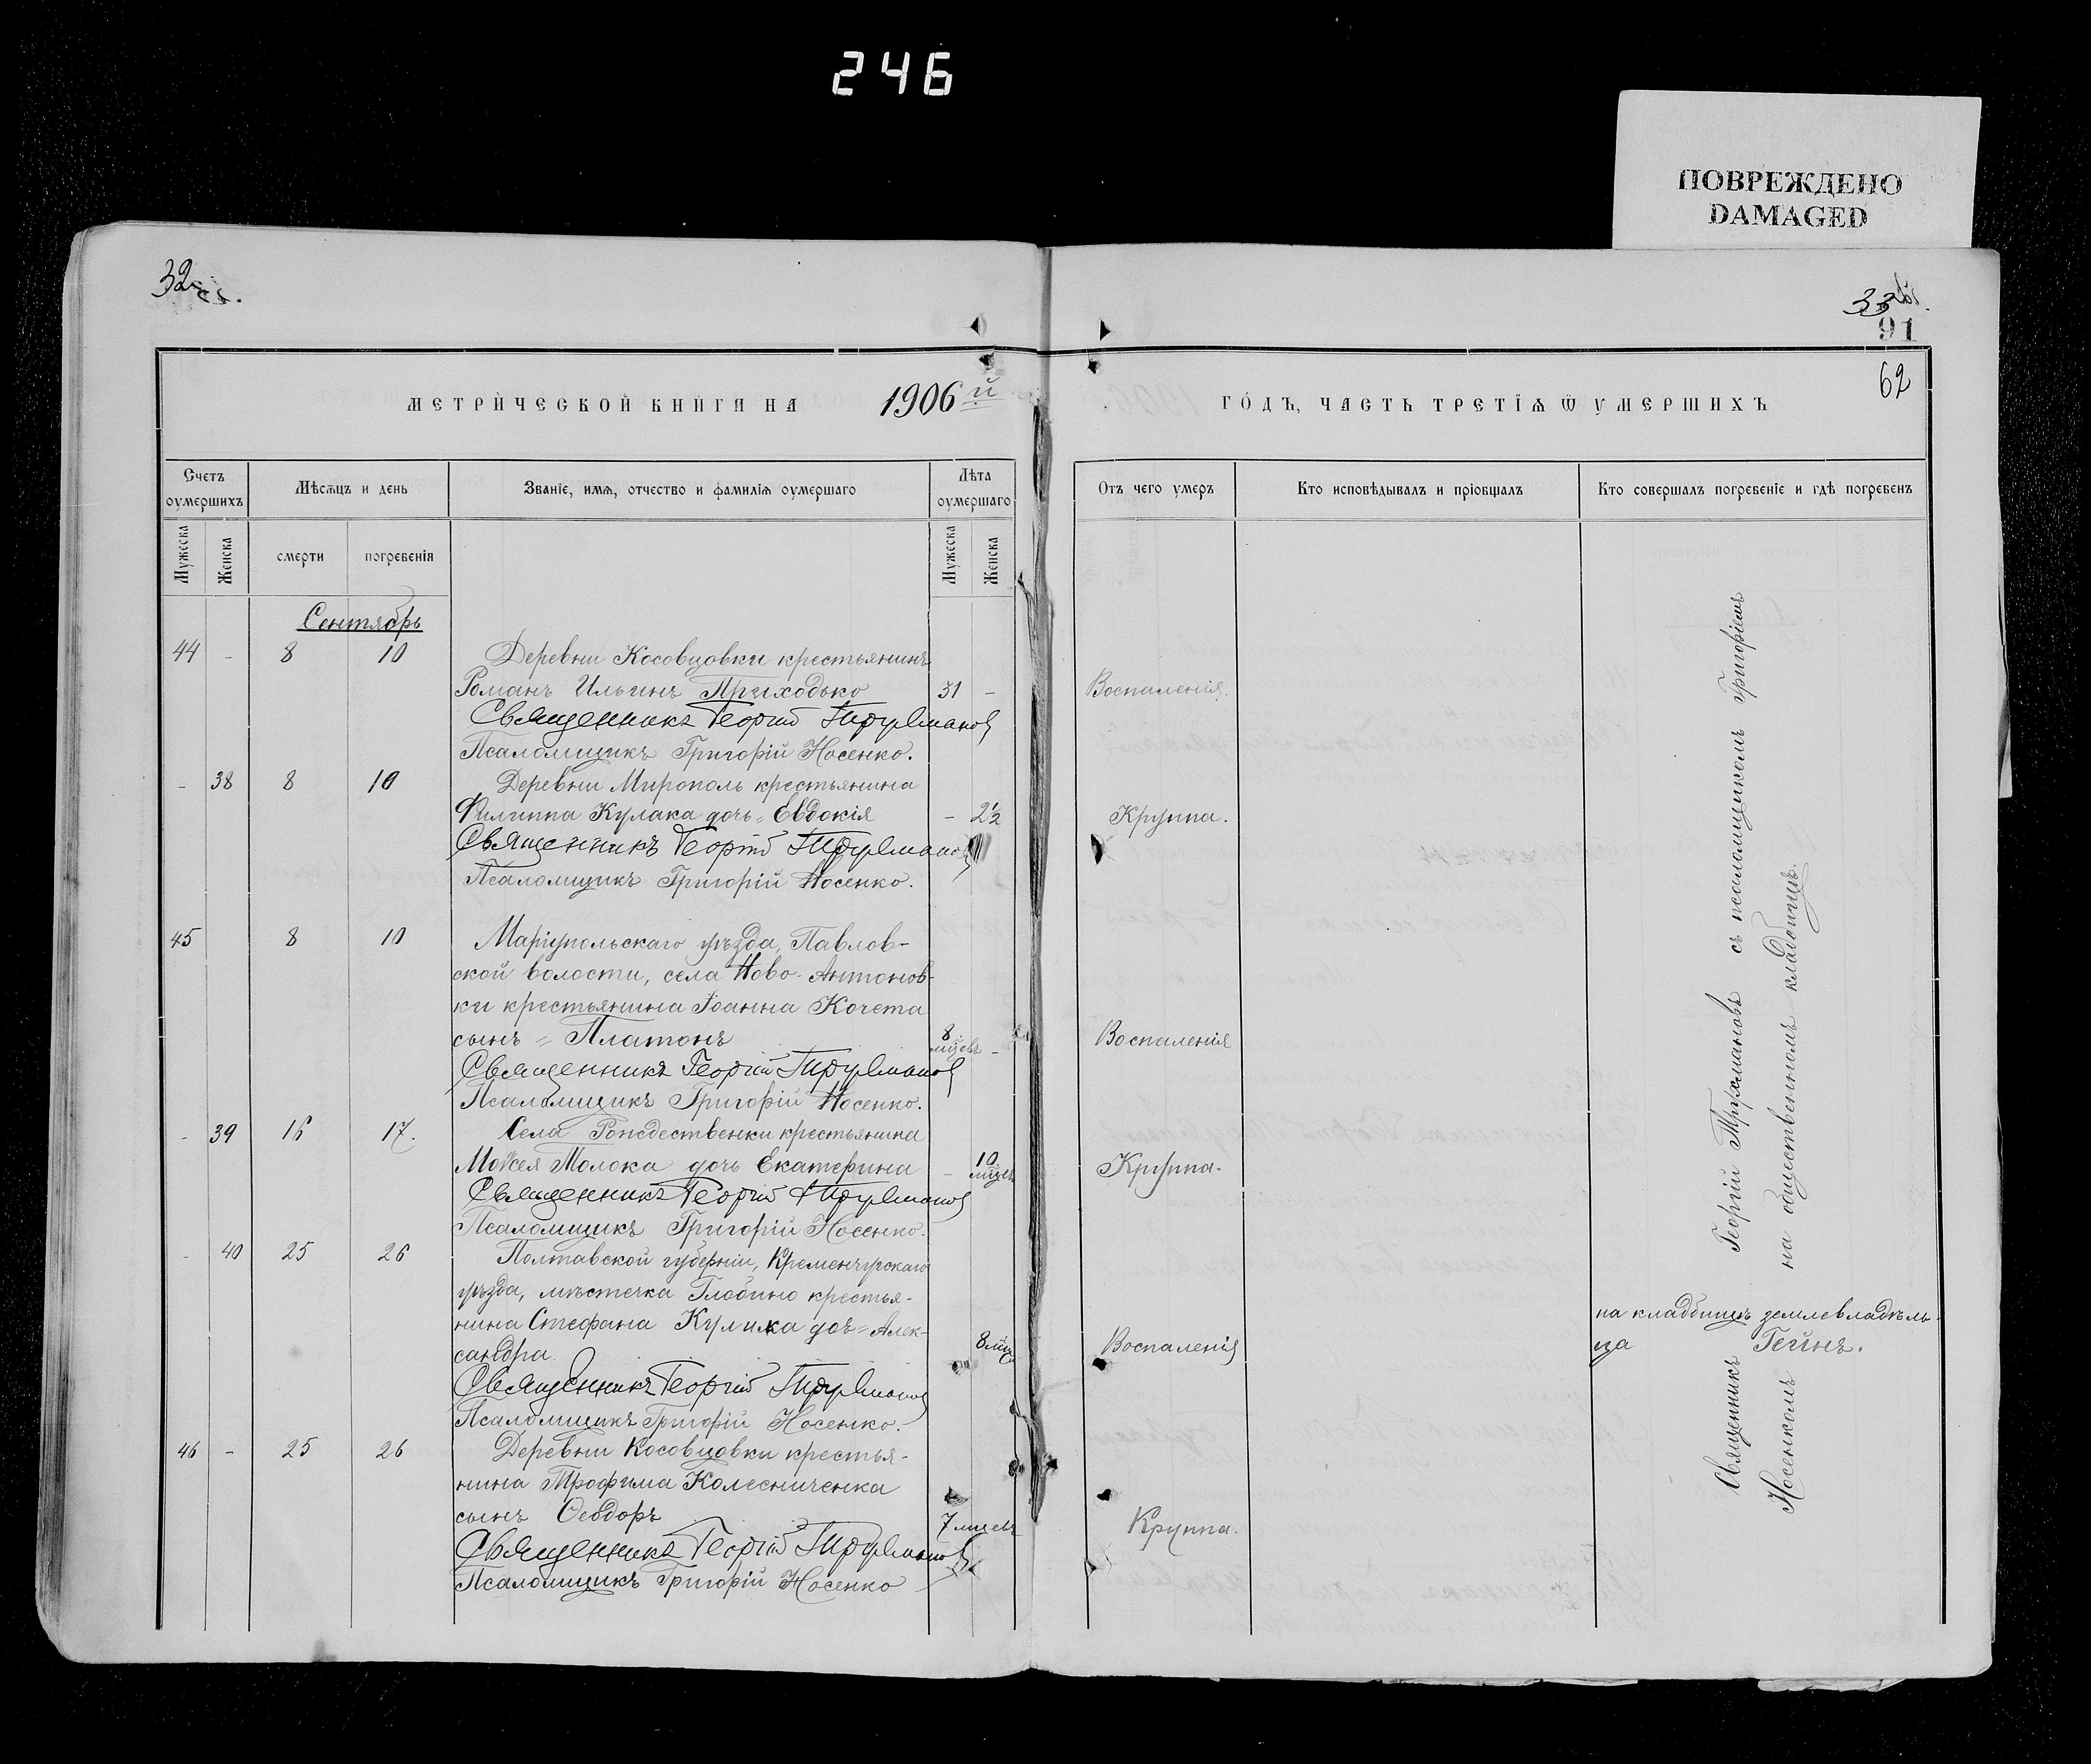 246
ПОВРЕЖДЕНО
DAMAGED
32
33
91
62
МЕТРИЧЕСКОЙ КНИГИ НА 1906й
ГОДЪ, ЧАСТЬ ТРЕТІѦ Ѿ УМЕРШИХЪ
Счетъ оумершихъ
Мѣсѧцъ и день
Званіе, имѧ, отчество и фамиліѧ оумершаго
Лѣта оумершаго
Отъ чего умеръ
Кто исповѣдывалъ и пріобщалъ
Кто совершалъ погребеніе и гдѣ погребенъ
Мужеска
Женска
смерти
погребенія
Мужеска
Женска
Сентябрь
44 - 8 10 Деревни Косовцовки крестьянинъ
Романъ Ильинъ Приходько 31 - Воспаленія.
Священникъ Георгій Трухманов
Псаломщикъ Григорій Носенко.
- 38 8 10 Деревни Мирополь крестьянина
Филиппа Кулака дочь = Евдокія - 2½ Круппа.
Священникъ Георгій Трухманов
Псаломщикъ Григорій Носенко.
45 8 10 Маріупольскаго уѣзда, Павлов-
ской волости, села Ново-Антонов-
ки крестьянина Іоанна Кочета
сынъ = Платонъ 8 мцевъ - Воспаленія
Священникъ Георгій Трухманов
Псаломщикъ Григорій Носенко.
- 39 16 17. Села Рождественки крестьянина
Моисея Молока дочь Екатерина - 10 мцевъ Круппа.
Священникъ Георгій Трухманов
Псаломщикъ Григорій Носенко.
- 40 25 26 Полтавской губерніи, Кременчугскаго
уѣзда, мѣстечка Глобино крестья-
нина Стефана Кулика дочь = Алек-
сандра 8 Воспаленія
Священникъ Георгій Трухманов
Псаломщикъ Григорій Носенко.
46 - 25 26 Деревни Косовцовки крестья-
нина Трофима Колесниченка
сынъ Ѳеодоръ 7 мцевъ Круппа.
Священникъ Георгій Трухманов
Псаломщикъ Григорій Носенко
Священникъ Георгій Трухмановъ съ псаломщикомъ Григоріемъ
Носенкомъ на общественномъ кладбищѣ.
на кладбищѣ землевладѣль-
ца Гейнъ.